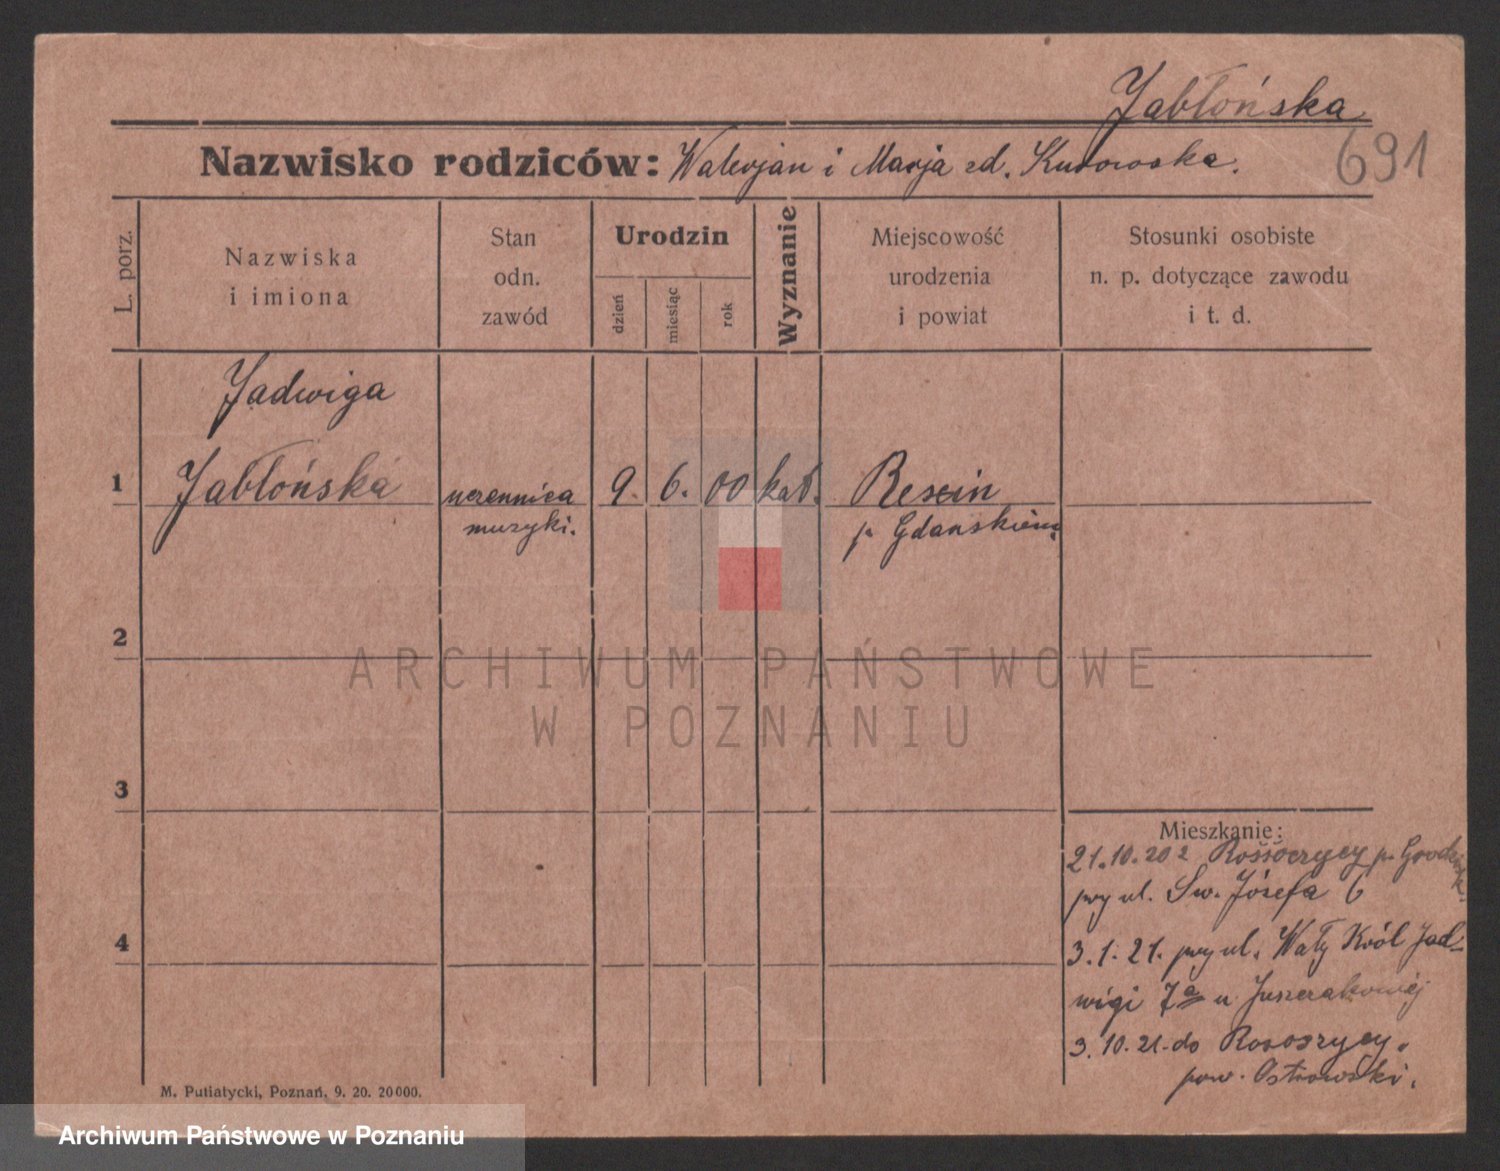 Jabłońska
Nazwisko rodziców: Walerjan i Marja zd. Kurowska.
691
L. porz.
Nazwiska
i imiona
Stan
odn.
zawód
Urodzin
dzień
miesiąc
rok
Wyznanie
Miejscowość
urodzenia
i powiat
Stosunki osobiste
n. p. dotyczące zawodu
i t. d.
Jadwiga
1 Jabłońska uczennica 9. 6. 00 kat. Rexin
muzyki. p. Gdańskiem
2
ARCHIWUM PAŃSTWOWE
W POZNANIU
3
Mieszkanie:
21.10.20 z p.
przy ul. Św. Józefa 6
4
3.1.21. przy ul. Wały Król Jad-
wigi 7a u
3.10.21. do
pow. Ostrowski.
M. Putiatycki, Poznań. 9. 20. 20000.
Archiwum Państwowe w Poznaniu